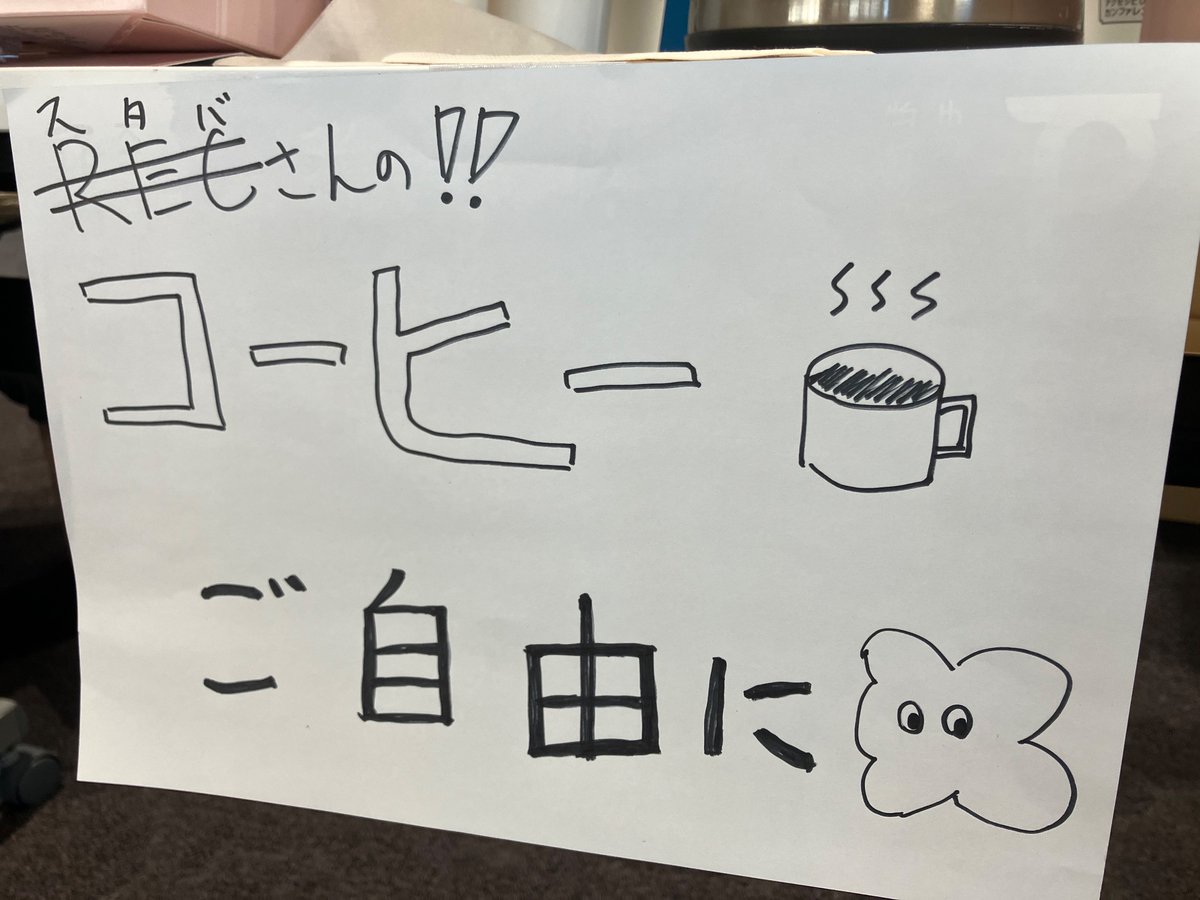 スタバ
RECさんの!!
コーヒー
ご自由に